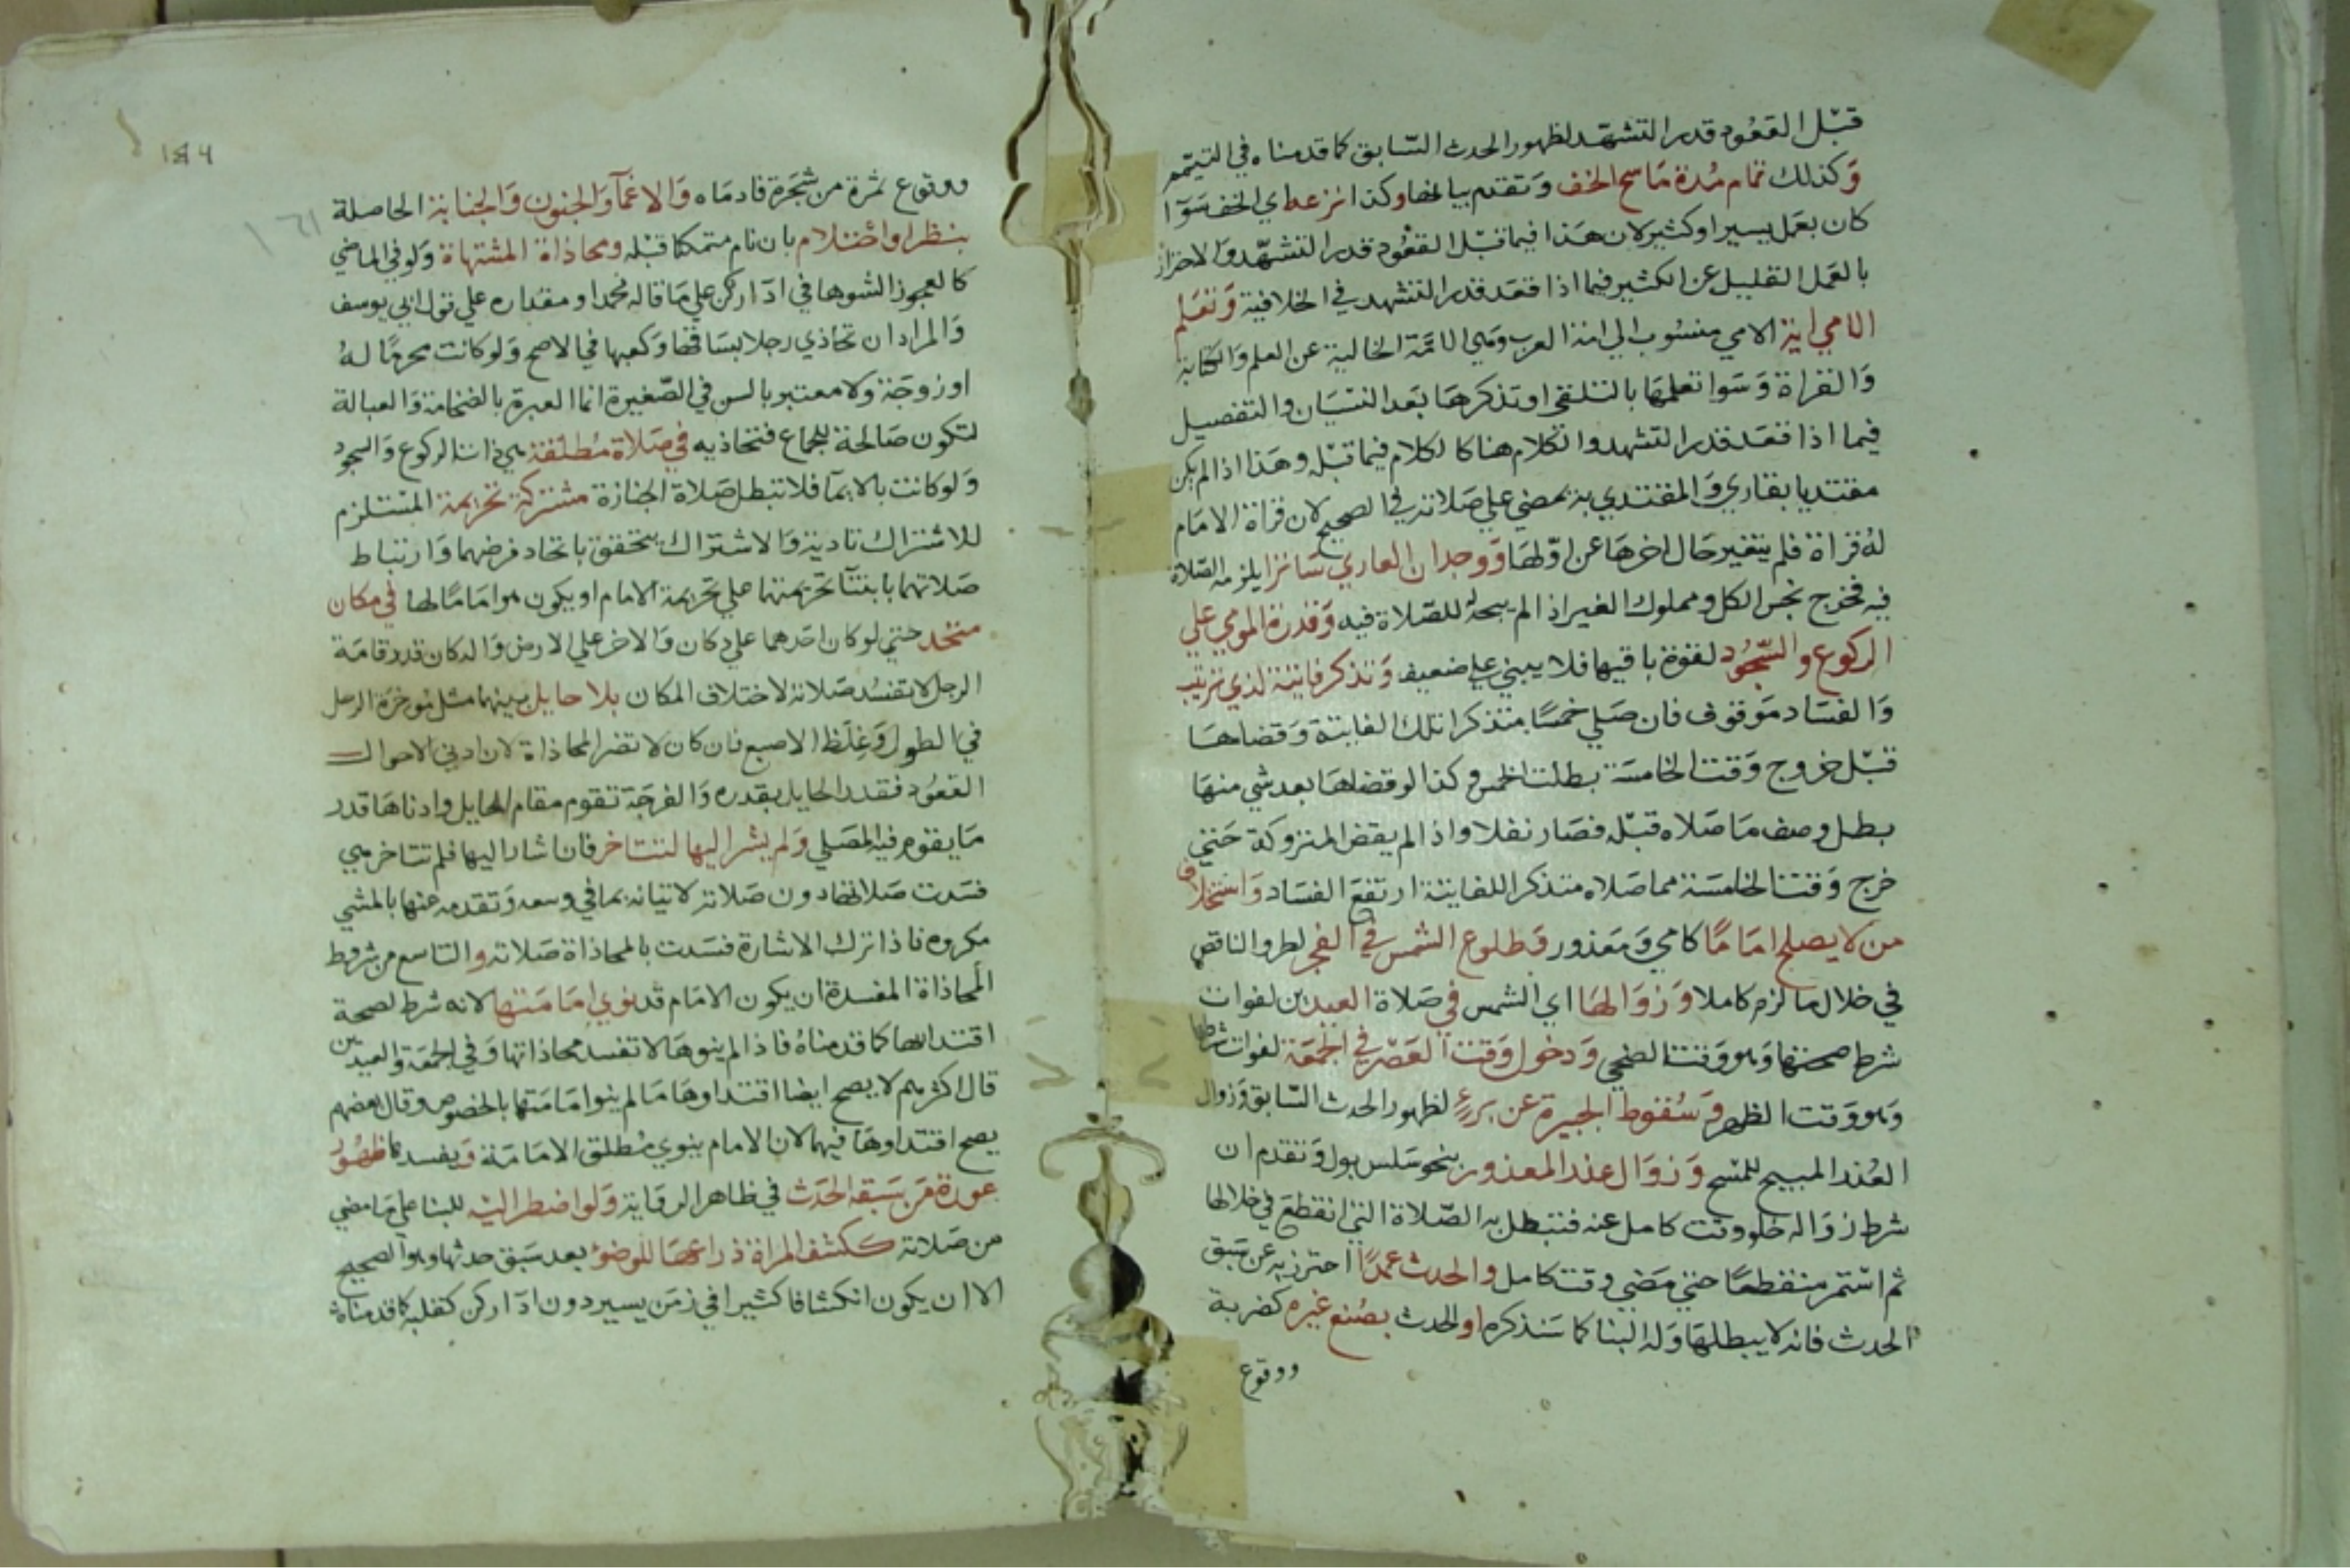 قبل القعود قدر التشهد لظهور الحدث السابق كما قدمناه في التيمم
وكذلك تمام مدة ماسح الخف وتقدم بيانها وكذا نزعه اي الخف سوآ
كان بعمل يسير او كثير لان هذا فيما قبل القعود قدر التشهد والاحتراز
بالعمل القليل عن الكثير فيما اذا قعد قدر التشهد في الخلافية وتعلم
الامي اية الامي منسوب الي امة العرب وهي الامة الخالية عن العلم والكتابة
والقراة وسوا تعلمها بالتلقي او تذكرها بعد النسيان والتفصيل
فيما اذا قعد قدر التشهد والكلام هنا كالكلام فيما قبله وهذا اذا لم يكن
مقتديا بقاري والمقتدي به يمضي علي صلاته في الصحيح لان قراة الامام
له قراة فلم يتغير حال اخرها عن اولها ووجدان العاري ساترا يلزمه الصلاة
فيه فخرج نجس الكل ومملوك الغير اذ الم يبحه للصلاة فيه وقدرة المومي علي
الركوع والسجود لقوة باقيها فلا يبني علي ضعيف وتذكر فايتة لذي ترتيب
والفساد موقوف فان صلي خمسا متذكرا تلك الفايتة وقضاها
قبل خروج وقت الخامسة بطلت الخمس وكذا لو قضاها بعد شي منها
بطل وصف ما صلاه قبله فصار نفلا واذا لم يقض المتروكة حتي
خرج وقت الخامسة مما صلاه متذكرا للفايتة ارتفع الفساد واستخلاف
من لا يصلح اماما كامي ومعذور وطلوع الشمس في الفجر لطرو الناقص
في خلال ما لزم كاملا وزوالها اي الشمس في صلاة العيدين لفوات
شرط صحتها وهو وقت الضحي ودخول وقت العصر في الجمعة لفوات شرطها
وهو وقت الظهر وسقوط الجبيرة عن برء لظهور الحدث السابق وزوال
العذر المبيح للمسح وزوال عذر المعذور بنحو سلس بول وتقدم ان
شرط زواله خلو وقت كامل عنه فتبطل به الصلاة التي انقطع في خلالها
ثم استمر منقطعا حتي مضي وقت كامل والحدث عمدا احترز به عن سبق
الحدث فانه لا يبطلها وله البنا كما سنذكره او الحدث بصنع غيره كضربة
ووقوع
184
١٦١
ووقوع ثمرة من شجرة فادماه والاغمآ والجنون والجنابة الحاصلة
بنظر او احتلام بان نام متمكنا قبله ومحاذاة المشتهاة ولو في الماضي
كالعجوز الشوها في ادآ ركن علي ما قاله محمد او مقداره علي قول ابي يوسف
والمراد ان تحاذي رجلا بساقها وكعبها في الاصح ولو كانت محرما له
او زوجة ولا معتبر بالسن في الصغيرة انما العبرة بالضخامة والعبالة
لتكون صالحة للجماع فتحاذيه في صلاة مطلقة هي ذات الركوع والسجود
ولو كانت بالايمآ فلا تبطل صلاة الجنازة مشتركة تحريمة المستلزم
للاشتراك تادية والاشتراك يتحقق باتحاد فرضهما وارتباط
صلاتهما بابتنآ تحريمتها علي تحريمة الامام او يكون هو اماما لها في مكان
متحد حتي لو كان احدهما علي دكان والاخر علي الارض والدكان قدر قامة
الرجل لا تفسد صلاته لاختلاف المكان بلا حايل بينهما مثل موخرة الرحل
في الطول وغلظ الاصبع فان كان لا تضر المحاذاة لان ادني الاحوال
القعود فقدر الحايل بقدره والفرجة تقوم مقام الحايل وادناها قدر
ما يقوم فيه المصلي ولم يشر اليها لتتاخر فان اشار اليها فلم تتاخر هي
فسدت صلاتها دون صلاته لاتيانه بما في وسعه وتقدمه عنها بالمشي
مكروه فاذا ترك الاشارة فسدت بالمحاذاة صلاته والتاسع من شروط
المحاذاة المفسدة ان يكون الامام قد نوي امامتها لانه شرط لصحة
اقتدائها كما قدمناه فاذا لم ينوها لا تفسد محاذاتها وفي الجمعة والعيدين
قال اكثرهم لا يصح ايضا اقتداوها ما لم ينوا امامتها بالخصوص وقال بعضهم
يصح اقتداوها فيهما لان الامام ينوي مطلق الامامة ويفسدها ظهور
عورة من سبقه الحدث في ظاهر الرواية ولو اضطر اليه للبنا علي ما مضي
من صلاته ككشف المراة ذراعها للوضوء بعد سبق حدثها وهو الصحيح
الا ان يكون انكشافا كثيرا في زمن يسير دون ادآ ركن كقلبه كما قدمناه